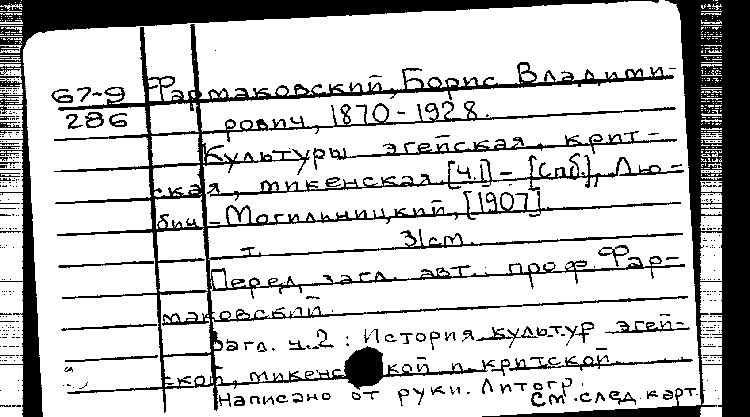 67-9 Фармаковский, Борис Владими-
286 рович, 1870-1928.
Культуры эгейская, крит-
ская, микенская. [ч.1] - [Спб], Лю-
бич-Могильницкий, [1907].
т. 31см.
Перед загл. авт.: проф. Фар-
маковский.
Загл. ч.2: История культур эгей-
ской, микенской и критской.
Написано от руки. Литогр.
См. след. карт.